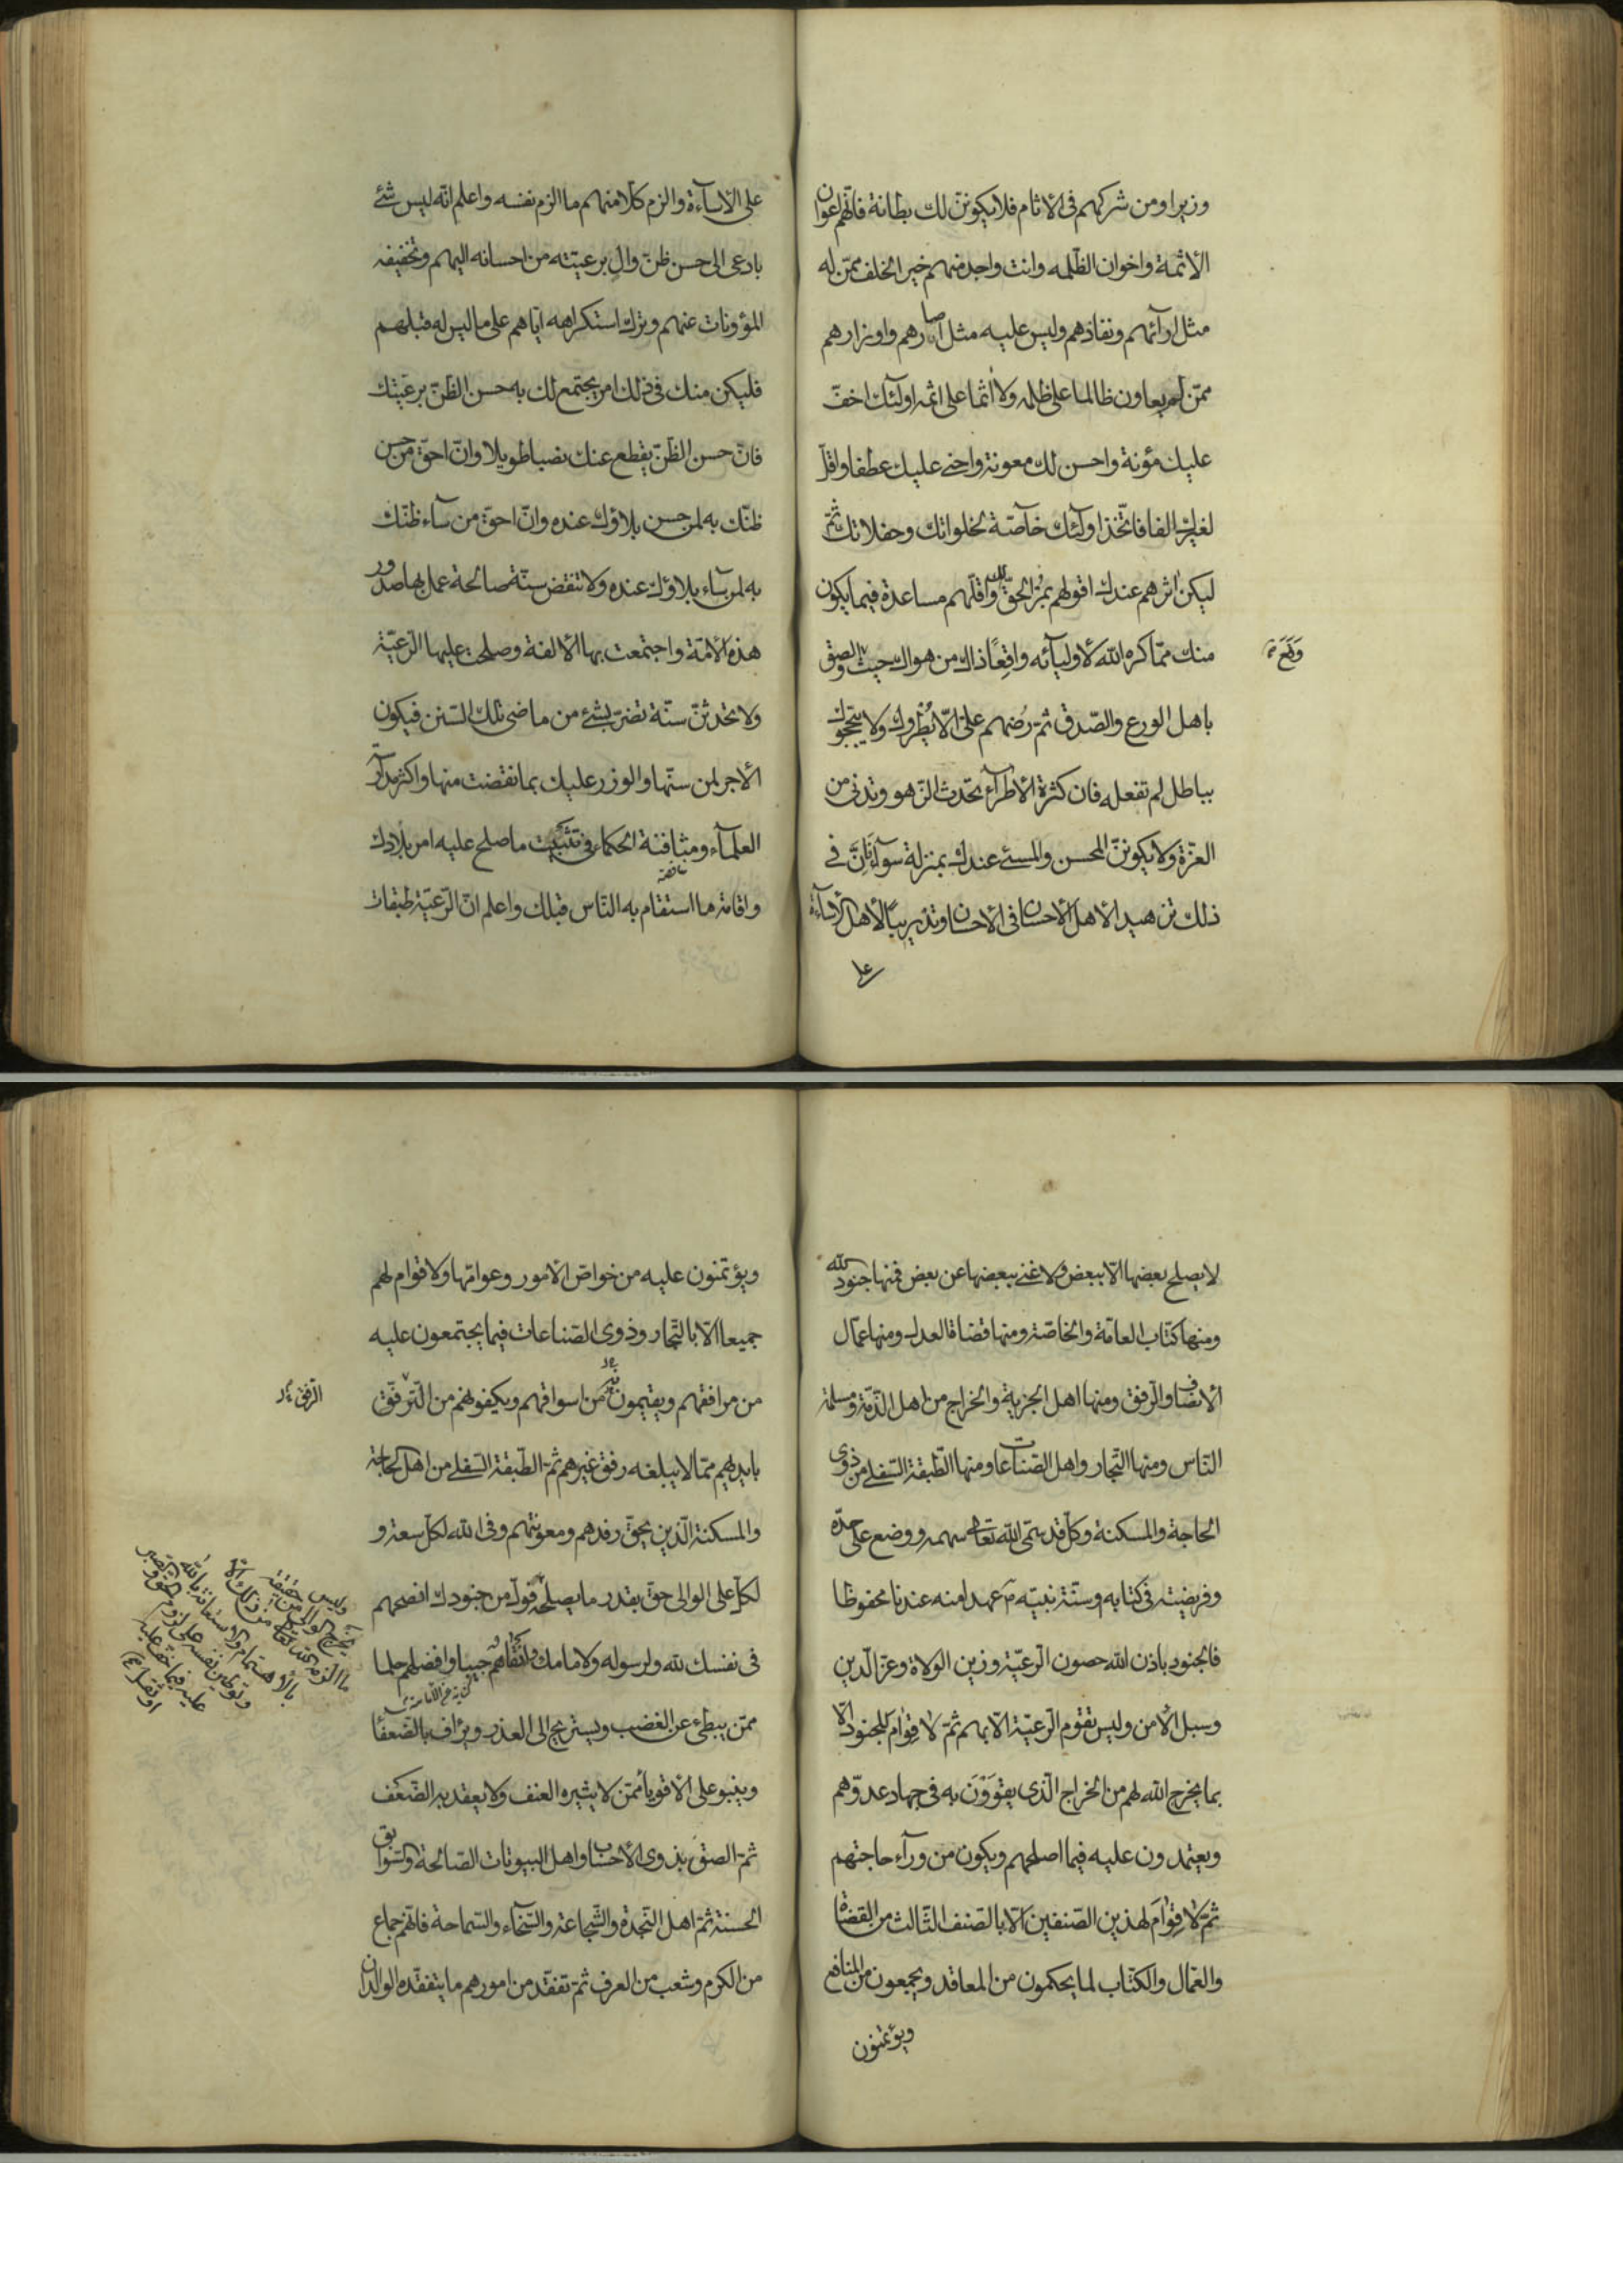 وزيرا ومن شركهم فى الاثام فلا يكوننّ لك بطانة فانّهم اعوان
الاثمة واخوان الظلمه وانت واجد منهم خير الخلف ممّن له
مثل ارآئهم ونفاذهم وليس عليه مثل اصارهم واوزارهم
ممّن لم يعاون ظالما على ظلمه ولا اثما على اثمه اولئك اخفّ
عليك مؤنة واحسن لك معونة واحنى عليك عطفا واقلّ
لغيرك الفا فاتّخذ اولئك خاصّة لخلواتك وحفلاتك ثمّ
ليكن اثرهم عندك اقولهم بمرّ الحقّ لك واقلّهم مساعدة فيما يكون
منك ممّا كره الله لاوليآئه واقِعًا ذلك من هواك حيث وقع والصق
وَقَعَ
باهل الورع والصّدق ثمّ رُضهم على الّا يُطْروك ولا يبجّحوك
بباطل لم تفعله فان كثرة الاطرآء تحدث الزّهو وتدنى من
العزّة ولا يكوننّ المحسن والمسئ عندك بمنزلة سوآء فَاِنَّ فى
ذلك تزهيدا لاهل الاحسان فى الاحسان وتدريبًا لاهل الاسآءة
على
على الاسآءة والزم كلّا منهم ما الزم نفسه واعلم انّه ليس شئ
بادعى الى حسن ظنّ والٍ برعيّته من احسانه اليهم وتخفيفه
المؤونات عنهم وترك استكراهه ايّاهم على ما ليس له قبلهم
فليكن منك فى ذلك امر يجتمع لك به حسن الظنّ برعيّتك
فانّ حسن الظّنّ يقطع عنك نصبا طويلا وانّ احقّ من حسن
ظنّك به لمن حسن بلاؤك عنده وانّ احقّ من سآء ظنّك
به لمن سآء بلاؤك عنده ولا تنقض سنّة صالحة عمل بها صدور
هذه الامّة واجتمعت بها الالفة وصلحت عليها الرّعيّة
ولا تحدثنّ سنّة تضرّ بشئ من ماضى تلك السّنن فيكون
الاجر لمن سنّها والوزر عليك بما نقضت منها واكثر مدارسة
العلمآء ومثافنة الحكماء فى تثبيت ما صلح عليه امر بلادك
واقامة ما استقام به النّاس قبلك واعلم انّ الرّعيّة طبقات
لا يصلح بعضها الّا ببعض ولا غنى ببعضها عن بعض فمنها جنود الله
ومنها كتّاب العامّة والخاصّة ومنها قضاة العدل ومنها عمّال
الانصاف والرّفق ومنها اهل الجزية والخراج من اهل الذّمّة ومسلمة
النّاس ومنها التّجار واهل الصّناعات ومنها الطّبقة السّفلى من ذوى
الحاجة والمسكنة وكلّ قد سمّى الله تعالى سهمه ووضع على حدّه
وفريضته فى كتابه وسنّة نبيّه م عهدا منه عندنا محفوظا
فالجنود باذن الله حصون الرّعيّة وزين الولاة وعزّ الدّين
وسبل الامن وليس تقوم الرّعيّة الّا بهم ثمّ لا قوام للجنود الّا
بما يخرج الله لهم من الخراج الّذى يقوَوْنَ به فى جهاد عدوّهم
ويعتمدون عليه فيما اصلحهم ويكون من ورآء حاجتهم
ثمّ لا قِوَامَ لهذين الصّنفين الّا بالصّنف الثّالث من القضاة
والعمّال والكتّاب لما يحكمون من المعاقد ويجمعون من المنافع
ويؤتمنون
ويؤتمنون عليه من خواصّ الامور وعوامّها ولا قوام لهم
جميعا الّا بالتّجار وذوى الصّناعات فيما يجتمعون عليه
من مرافقهم ويقيمونه من اسواقهم ويكفونهم من التّرفّق
الترفق
بايديهم ممّا لا يبلغه رفق غيرهم ثمّ الطّبقة السّفلى من اهل الحاجة
والمسكنة الّذين يحقّ رفدهم ومعونتهم وفى الله لكلّ سعة و
لكلّ على الوالى حقّ بقدر ما يصلحه فولّ من جنودك انصحهم
وليس يخرج الوالى من حقيقة
ما الزمه الله تعالى من ذلك الّا
بالاهتمام والاستعانة بالله
وتوطين نفسه على لزوم الحق والصبر
عليه فيما خف عليه
او ثقل
فى نفسك لله ولرسوله ولامامك وانقاهم جيبا وافضلهم حلما
ممّن يبطئ عن الغضب ويستريح الى العذر ويرأف بالضّعفآء
وينبو على الاقويآء ممّن لا يثيره العنف ولا يقعد به الضّعف
ثمّ الصق بذوى الاحساب واهل البيوتات الصّالحة والسّوابق
الحسنة ثمّ اهل النّجدة والشّجاعة والسّخآء والسّماحة فانّهم جماع
من الكرم وشعب من العرف ثمّ تفقّد من امورهم ما يتفقّده الوالدان